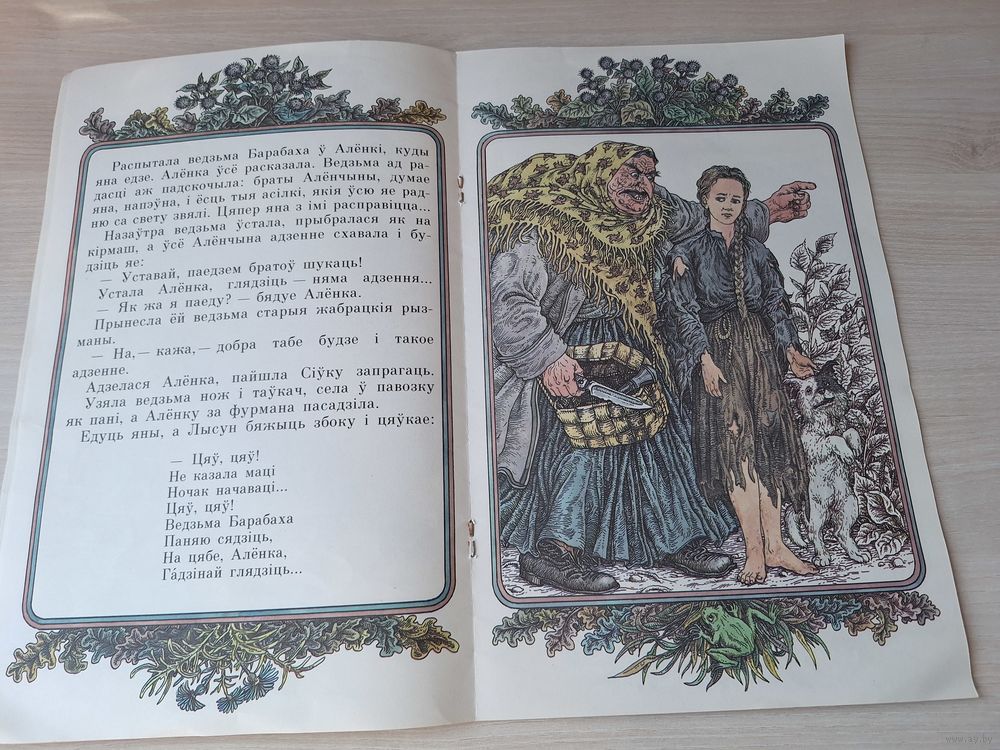 Распытала ведзьма Барабаха ў Алёнкі, куды
яна едзе. Алёнка ўсё расказала. Ведзьма ад ра-
дасці аж падскочыла: браты Алёнчыны, думае
яна, напэўна, і ёсць тыя асілкі, якія ўсю яе рад-
ню са свету звялі. Цяпер яна з імі расправіцца...
Назаўтра ведзьма ўстала, прыбралася як на
кірмаш, а ўсё Алёнчына адзенне схавала і бу-
дзіць яе:
— Уставай, паедзем братоў шукаць!
Устала Алёнка, глядзіць — няма адзення...
— Як жа я паеду? — бядуе Алёнка.
Прынесла ёй ведзьма старыя жабрацкія рыз-
маны.
— На, — кажа, — добра табе будзе і такое
адзенне.
Адзелася Алёнка, пайшла Сіўку запрагаць.
Узяла ведзьма нож і таўкач, села ў павозку
як пані, а Алёнку за фурмана пасадзіла.
Едуць яны, а Лысун бяжыць збоку і цяўкае:
— Цяў, цяў!
Не казала маці
Ночак начаваці...
Цяў, цяў!
Ведзьма Барабаха
Паняю сядзіць,
На цябе, Алёнка,
Га́дзінай глядзіць...
www.ay.by